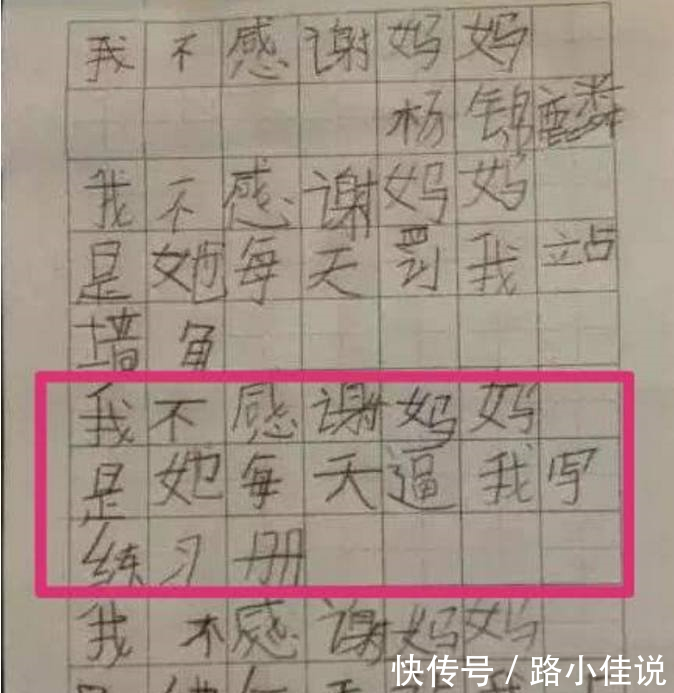 我不感谢妈妈
杨锦麟
我不感谢妈妈
是她每天罚我站
墙角
我不感谢妈妈
是她每天逼我写
练习册
我不感谢妈妈
快传号 / 路小佳说